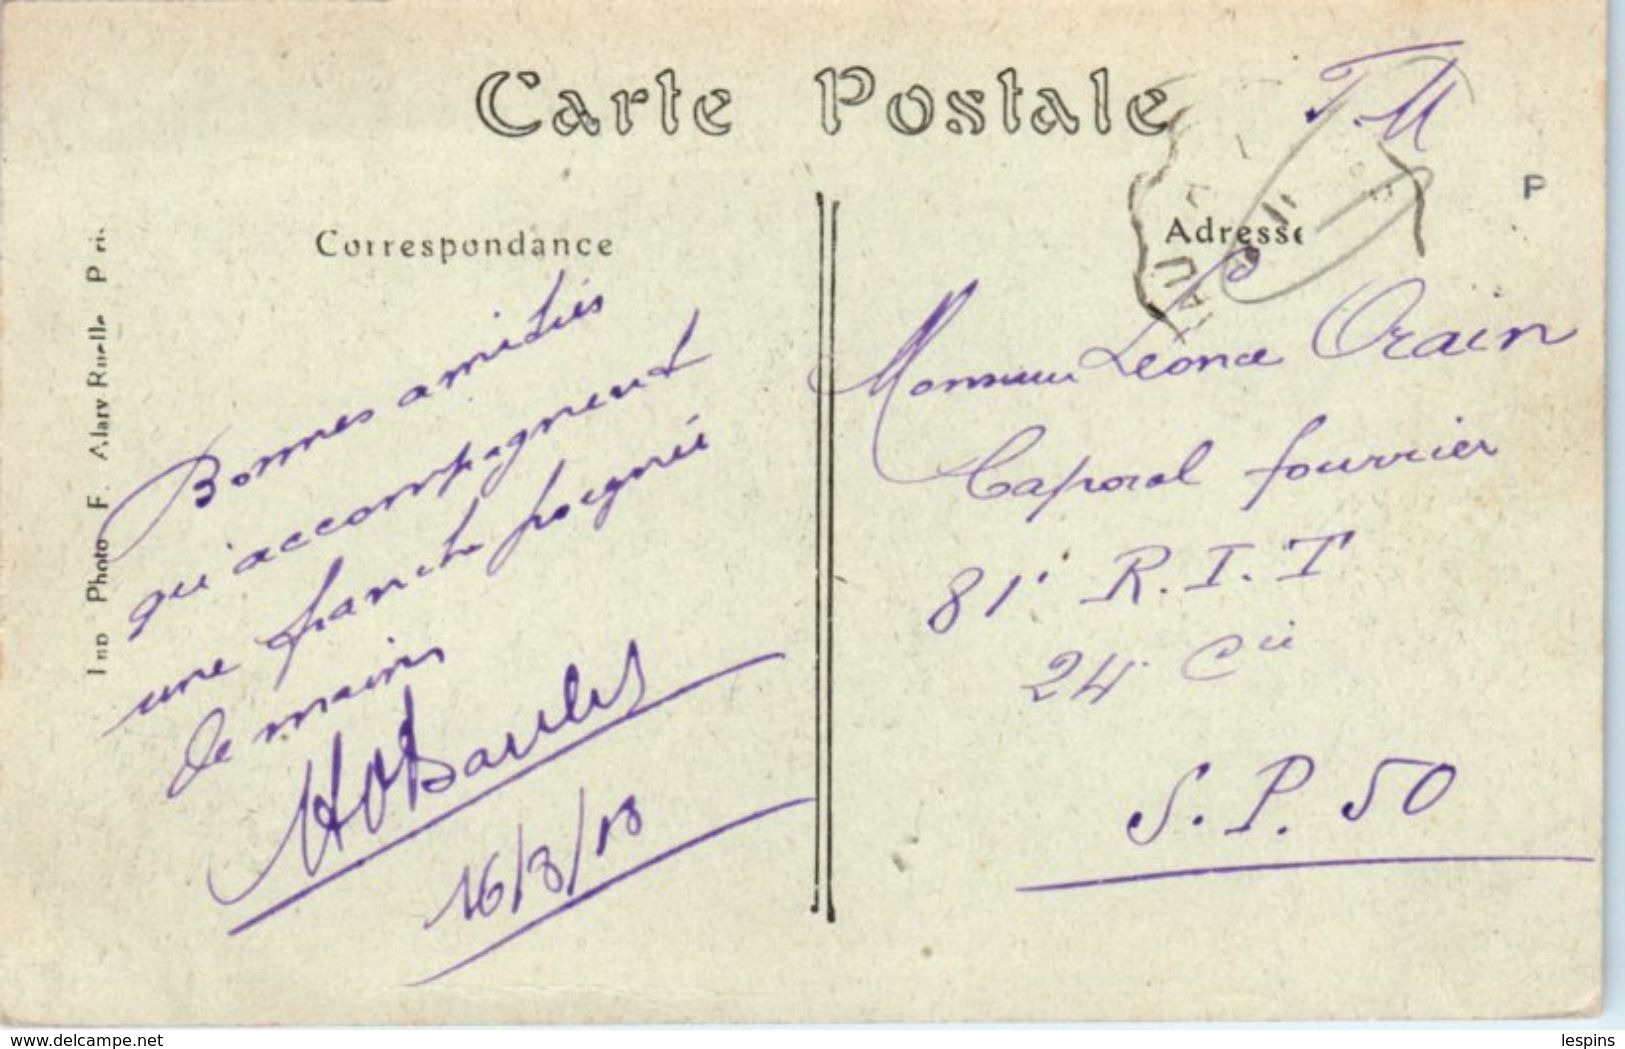 Carte Postale
F.M
P
Correspondance
Adresse
Imp Photo F. Alary Ruelle Paris
Bonnes amitiés
qui accompagnent
une franche poignée
de mains
16/3/18
Monsieur Léonce Orain
Caporal fourrier
81e R.I.T
24e Cie
S.P. 50
www.delcampe.net
lespins